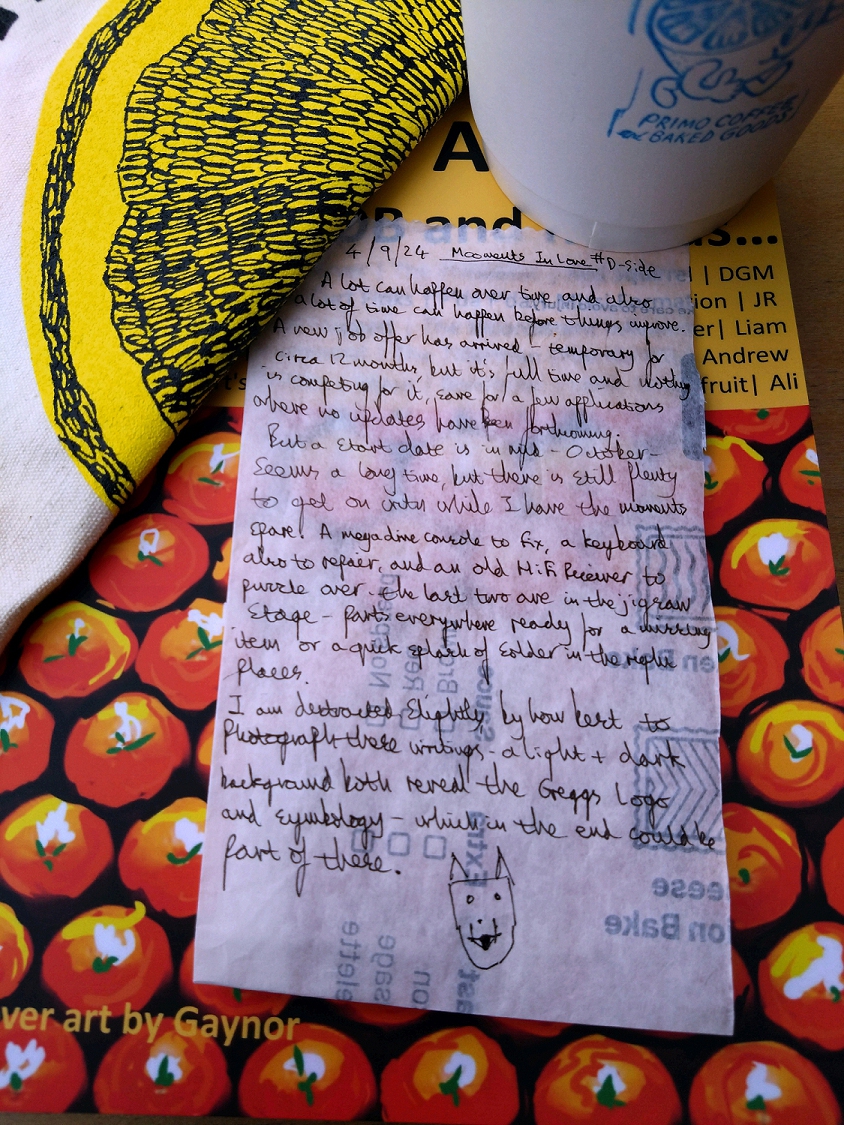 PRIMO COFFEE
& BAKED GOODS
A
and
s...
DGM
ation | JR
er | Liam
Andrew
fruit | Ali
4/9/24 Mooments In Love #D-Side
A lot can happen over time and also
a lot of time can happen before things improve.
A new job offer has arrived - temporary for
circa 12 months, but it's full time and nothing
is competing for it, save for a few applications
where no updates have been forthcoming.
But a start date is in mid - October -
Seems a long time, but there is still plenty
to get on with while I have the moments
spare. A megadrive console to fix, a keyboard
also to repair, and an old HiFi Receiver to
puzzle over. the last two are in the jigsaw
Stage - Parts everywhere ready for a missing
item or a quick splash of solder in the right
places.
I am distracted slightly by how best to
Photograph these writings - a light + dark
background both reveal the Greggs Logo
and symbology - which in the end could be
part of these.
Sauce
Extra
en Bake
eese
on Bake
elette
sage
on
ast
ver art by Gaynor